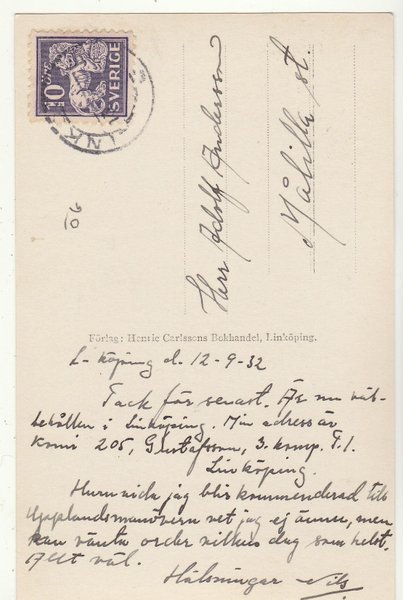 10
ÖRE
SVERIGE
LINK
90
Herr Adolf Andersson
Målilla st.
Förlag: Henric Carlssons Bokhandel, Linköping.
L-köping d. 12-9-32
Tack för senast. Är nu väl-
behållen i Linköping. Min adress är
205, Gustafsson, 3. komp. I.
Linköping.
Huruvida jag blir kommenderad till
Upplandsmanövern vet jag ej ännu, men
kan vänta order vilken dag som helst.
Allt väl.
Hälsningar Nils